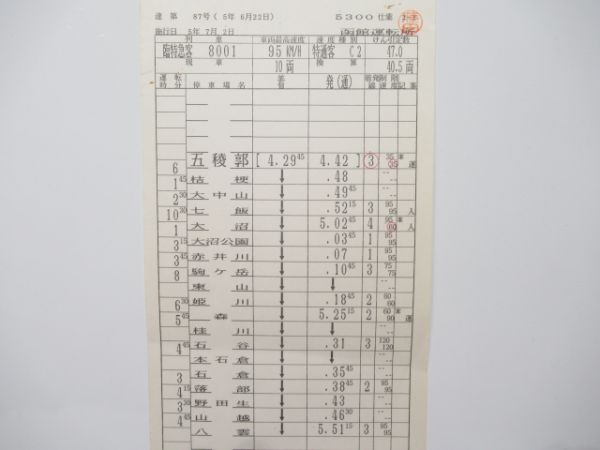 達 第 87号( 5年 6月22日) 5300 仕業
施行日 5年 7月 2日 函館運転所
列 車 車両最高速度 速度種別 けん引定数
臨特急客 8001 95 KM/H 特通客 C2 47.0
現 車 10両 換 算 40.5両
運転時分 停車場名 着 発(通) 着発線 制限速度 記事
五稜郭 [ 4.29 45 4.42 ] 3 35 35 運
6
桔梗 ↓ .48
1 45
大中山 ↓ .49 45
2 30
七飯 ↓ .52 15 3 95 95 入
10 30
大沼 ↓ 5.02 45 4 95
1
大沼公園 ↓ .03 45 1 95 95
3 15
赤井川 ↓ .07 1 95 95
3 45
駒ヶ岳 ↓ .10 45 3 75 75
8
東山 ↓ ↓
姫川 ↓ .18 45 2 60 60
6 30
森 ↓ 5.25 15 2 60 90 運
5 45
桂川 ↓ ↓
石谷 ↓ .31 3 120 120
4 45
本石倉 ↓ ↓
石倉 ↓ .35 45
3
落部 ↓ .38 45 2 95 95
4 15
野田生 ↓ .43
3 30
山越 ↓ .46 30
4 45
八雲 5.51 15 3 95 95